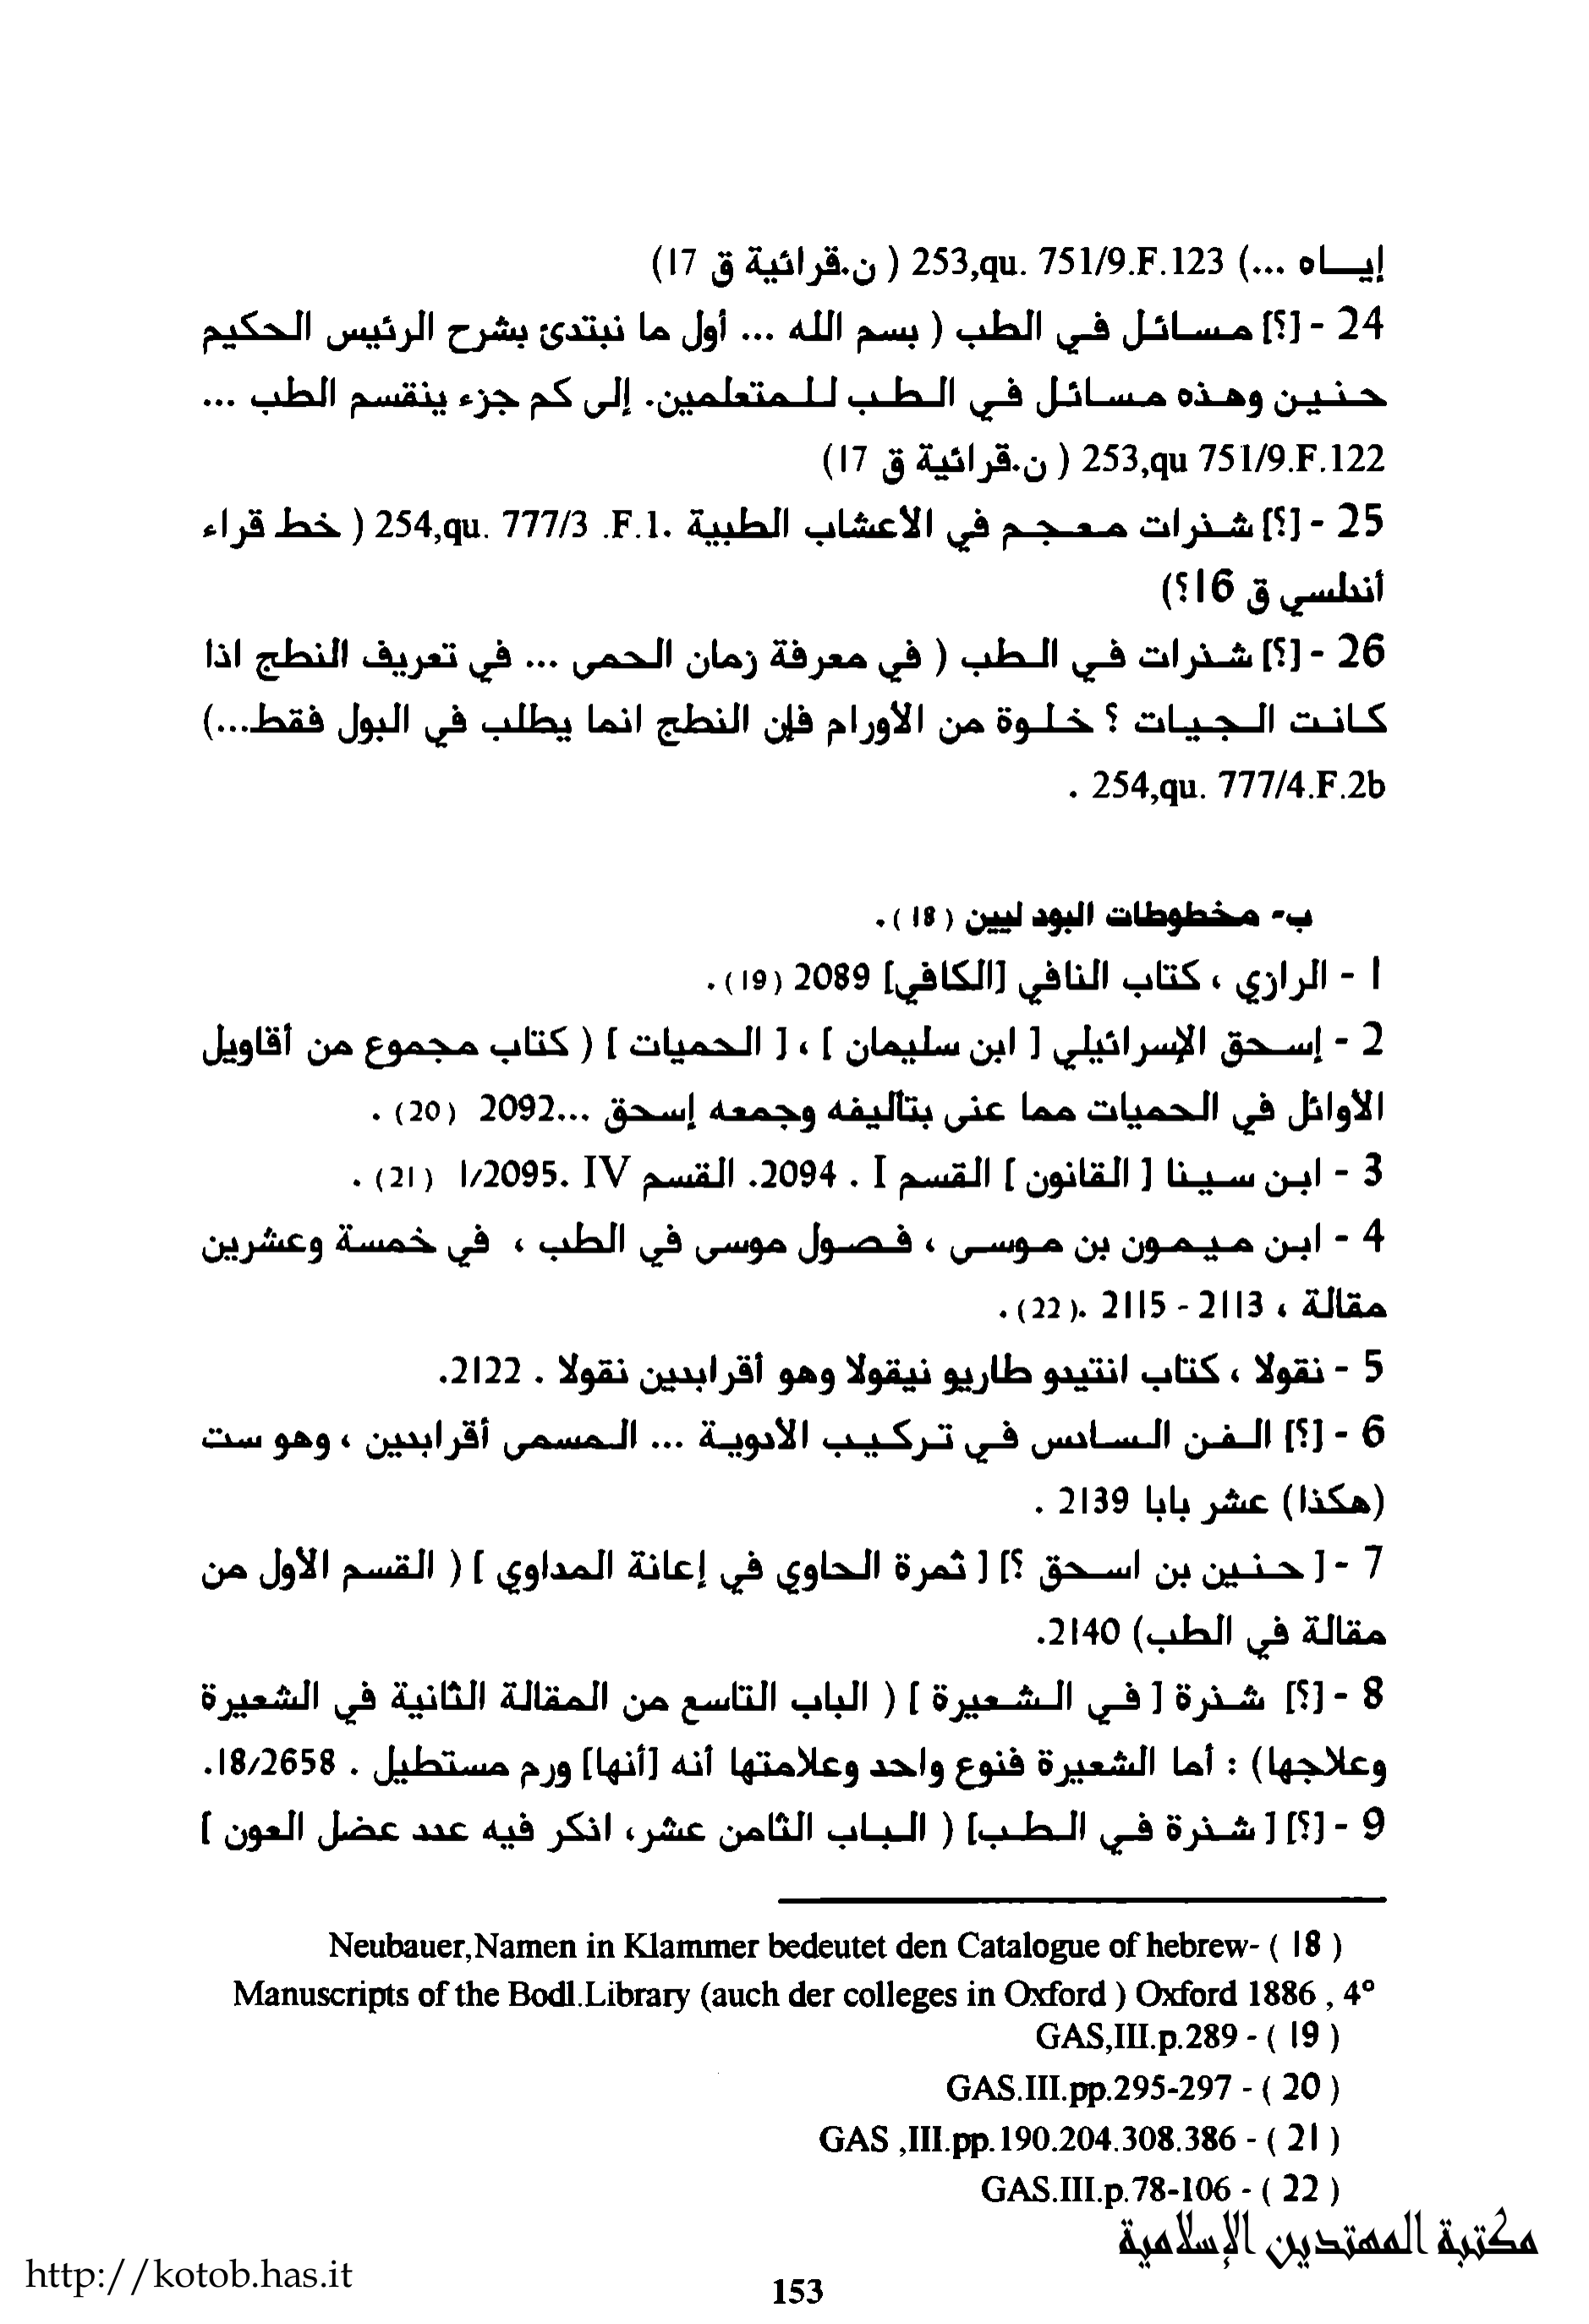 إيـــاه ...) 253,qu. 751/9.F.123 ( ن.قرائية ق 17)
24 - [؟] مسائل في الطب ( بسم الله ... أول ما نبتدئ بشرح الرئيس الحكيم
حنين وهذه مسائل في الطب للمتعلمين. إلى كم جزء ينقسم الطب ...
253,qu 751/9.F.122 ( ن.قرائية ق 17)
25 - [؟] شذرات معجم في الأعشاب الطبية .254,qu. 777/3 .F.1 ( خط قراء
أندلسي ق 16؟)
26 - [؟] شذرات في الطب ( في معرفة زمان الحمى ... في تعريف النطج اذا
كانت الجيات ؟ خلوة من الأورام فإن النطج انما يطلب في البول فقط...)
254,qu. 777/4.F.2b .
ب- مخطوطات البود ليين (18) .
1 - الرازي ، كتاب النافي [الكافي] 2089 (19) .
2 - إسحق الإسرائيلي [ ابن سليمان ] ، [ الحميات ] ( كتاب مجموع من أقاويل
الأوائل في الحميات مما عنى بتأليفه وجمعه إسحق ...2092 (20) .
3 - ابن سينا [ القانون ] القسم I . 2094. القسم IV .1/2095 (21) .
4 - ابن ميمون بن موسى ، فصول موسى في الطب ، في خمسة وعشرين
مقالة ، 2113 - 2115 .(22) .
5 - نقولا ، كتاب انتيدو طاريو نيقولا وهو أقرابدين نقولا . 2122.
6 - [؟] الفن السادس في تركيب الأدوية ... المسمى أقرابدين ، وهو ست
(هكذا) عشر بابا 2139 .
7 - [ حنين بن اسحق ؟] [ ثمرة الحاوي في إعانة المداوي ] ( القسم الأول من
مقالة في الطب) 2140.
8 - [؟] شذرة [ في الشعيرة ] ( الباب التاسع من المقالة الثانية في الشعيرة
وعلاجها) : أما الشعيرة فنوع واحد وعلامتها أنه [أنها] ورم مستطيل . 18/2658.
9 - [؟] [ شذرة في الطب] ( الباب الثامن عشر، انكر فيه عدد عضل العون ]
Neubauer,Namen in Klammer bedeutet den Catalogue of hebrew- ( 18 )
Manuscripts of the Bodl.Library (auch der colleges in Oxford ) Oxford 1886 , 4°
GAS,III.p.289 - ( 19 )
GAS.III.pp.295-297 - ( 20 )
GAS ,III.pp.190.204.308.386 - ( 21 )
GAS.III.p.78-106 - ( 22 )
مكتبة المهتدين الإسلامية
http://kotob.has.it
153